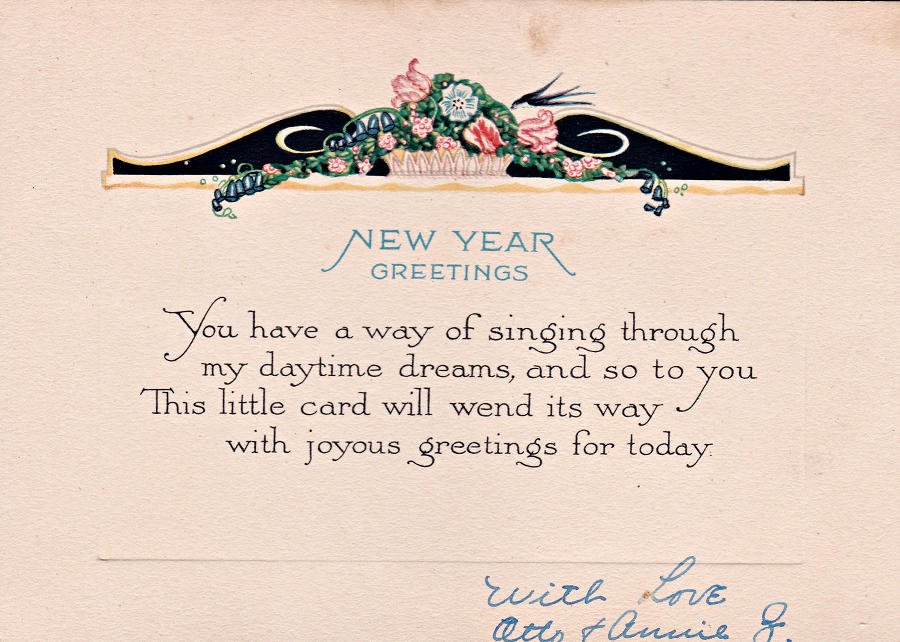 NEW YEAR
GREETINGS
You have a way of singing through
my daytime dreams, and so to you
This little card will wend its way
with joyous greetings for today.
With Love
Otto & Annie J.